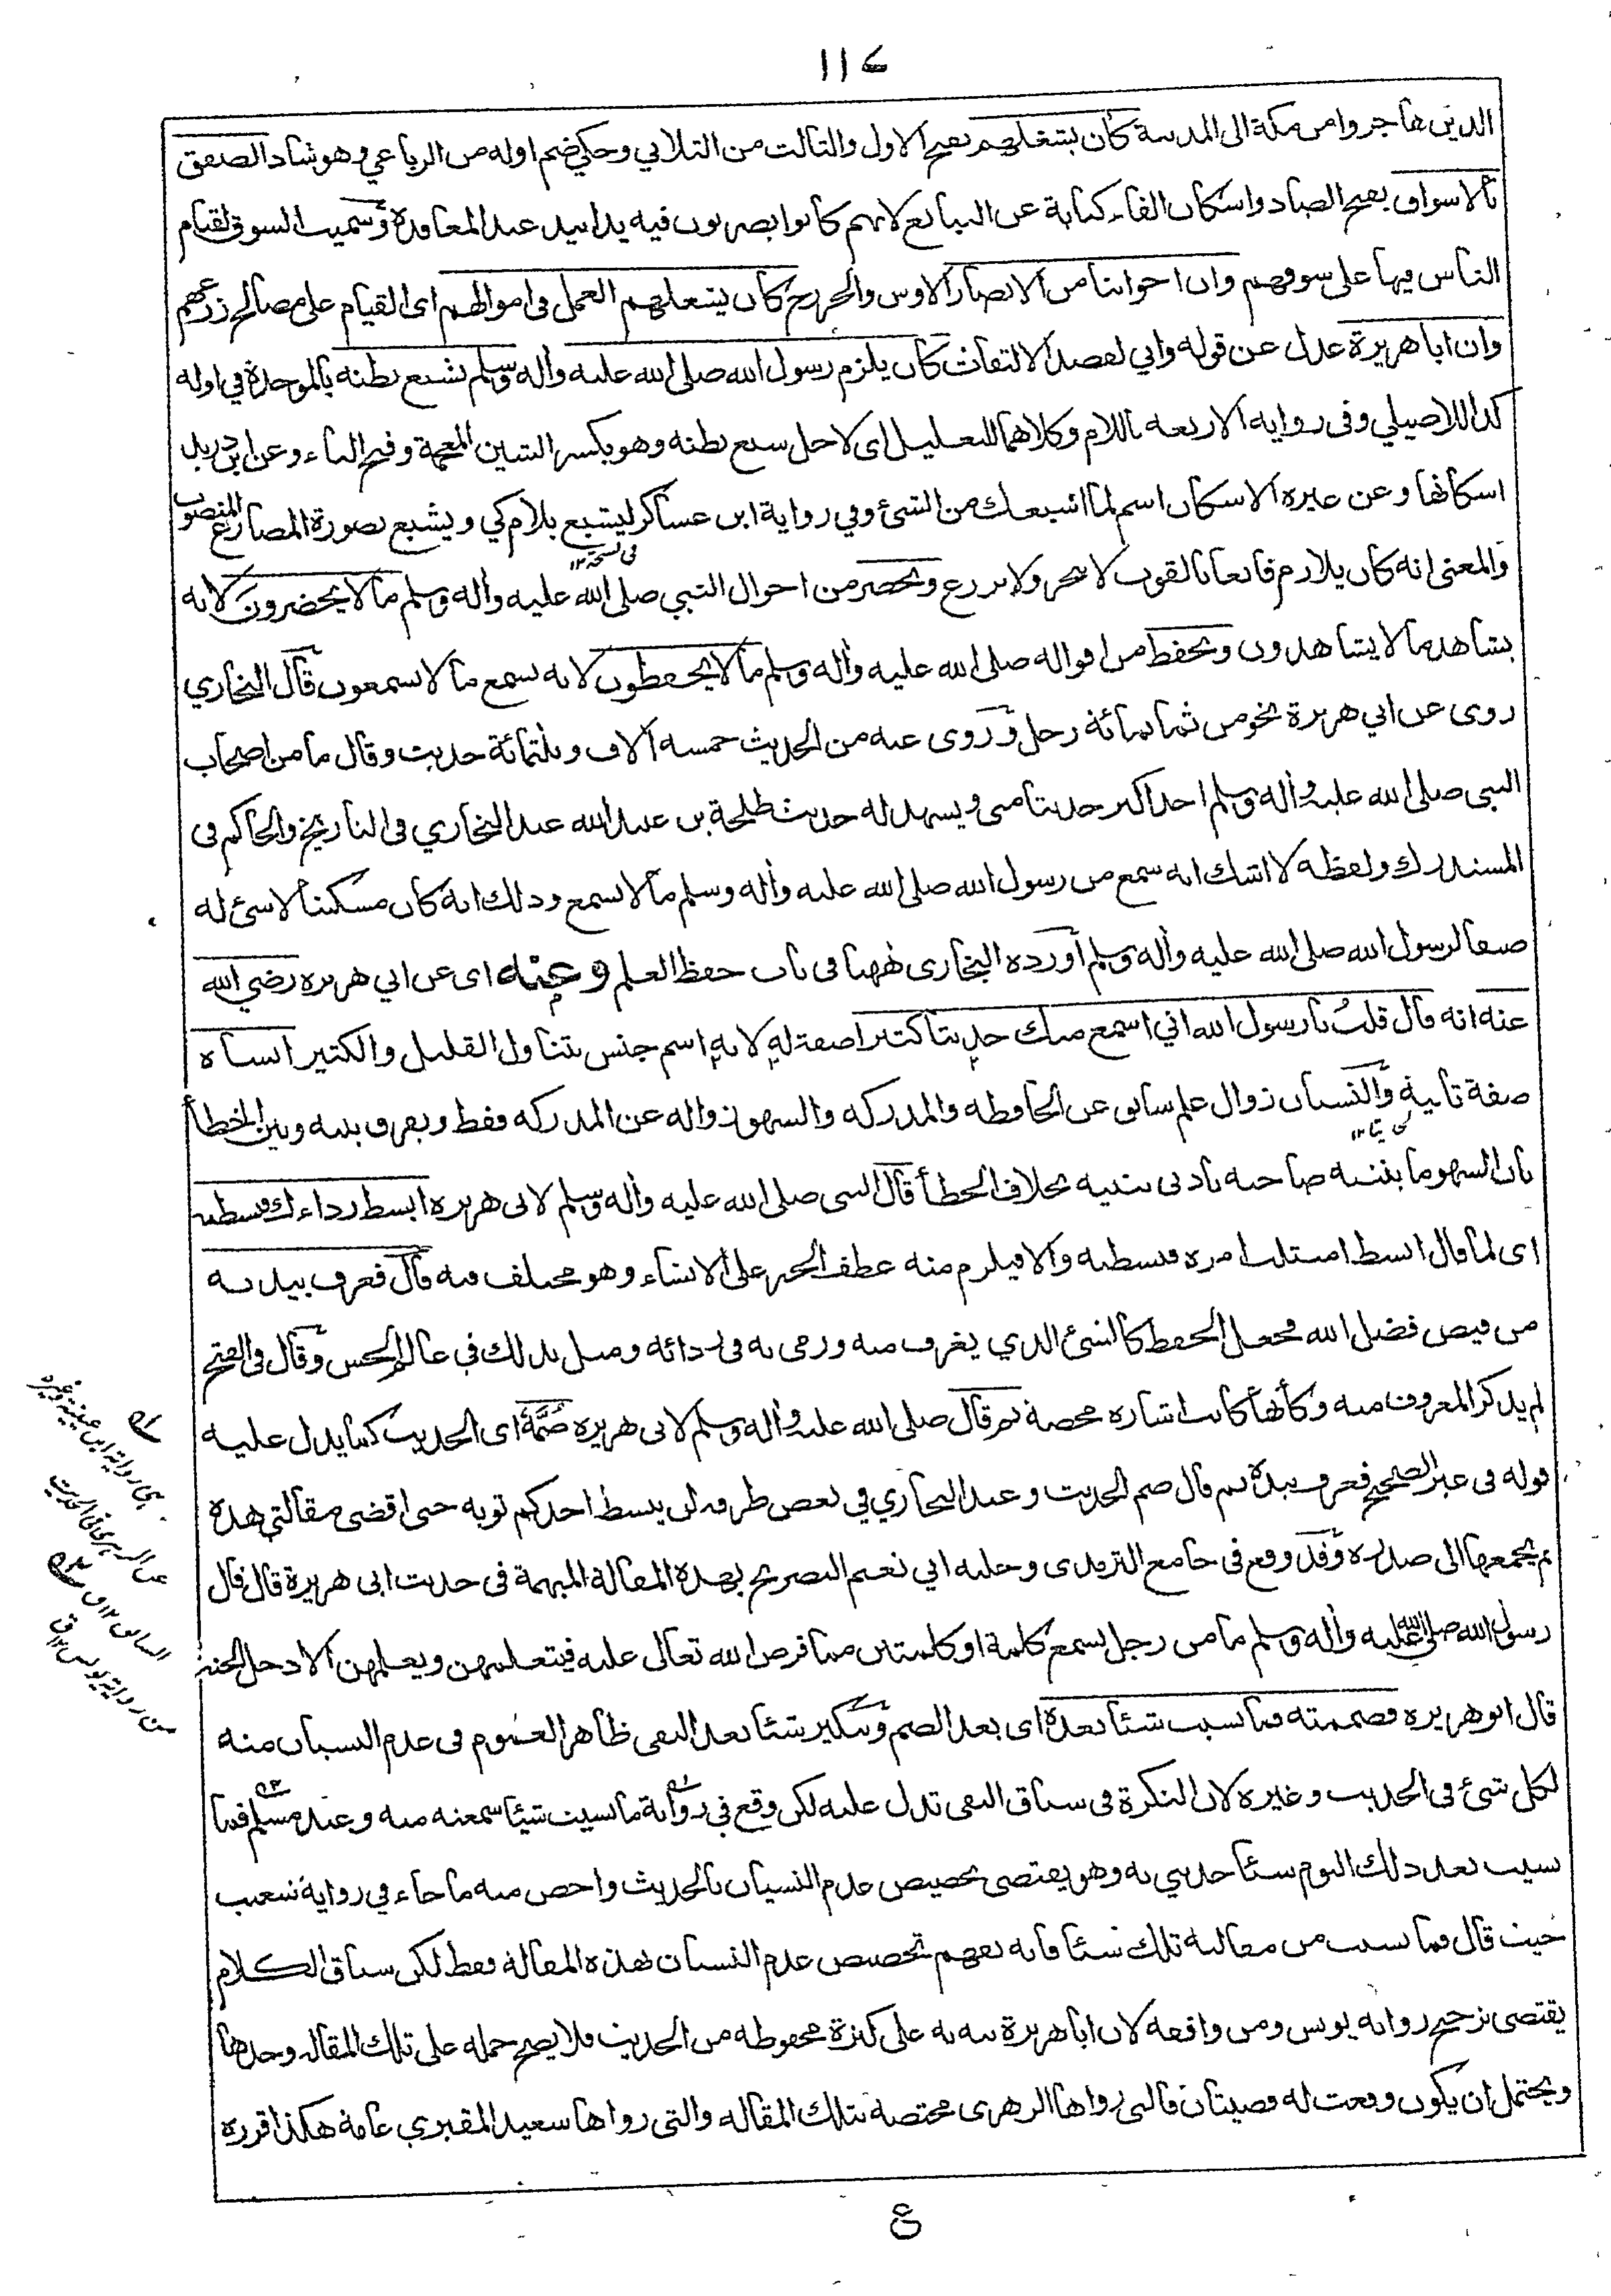 ١١٧
الذين هاجروا من مكة الى المدينة كان يشغلهم بفتح الاول والثالث من الثلاثي وحكي ضم اوله من الرباعي وهو شاذ الصفق
بالاسواق بفتح الصاد واسكان الفاء كناية عن التبايع لانهم كانوا يضربون فيه يدا بيد عند المعاقدة وسميت السوق لقيام
الناس فيها على سوقهم وان اخواننا من الانصار الاوس والخزرج كان يشغلهم العمل في اموالهم اى القيام على مصالح زرعهم
وان ابا هريرة عدل عن قوله واني لقصد الالتفات كان يلزم رسول الله صلى الله عليه وأله وسلم بشبع بطنه بالموحدة في اوله
كذا للاصيلي وفى رواية الاربعة باللام وكلاهما للتعليل اى لاجل شبع بطنه وهو بكسر الشين المعجمة وفتح الباء وعن ابن دريد
اسكانها وعن غيره الاسكان اسم لما اشبعك من الشئ وفي رواية ابن عساكر ليشبع بلام كي ويشبع بصورة المضارع المنصوب
والمعنى انه كان يلازم قانعا بالقوت لا يتجر ولا يزرع ويحضر من احوال النبي صلى الله عليه وأله وسلم ما لا يحضرون لانه
فى نسخة ١٢
يشاهد ما لا يشاهدون ويحفظ من اقواله صلى الله عليه وأله وسلم ما لا يحفظون لانه يسمع ما لا يسمعون قال البخاري
روى عن ابي هريرة نحو من ثمانمائة رجل وروى عنه من الحديث خمسة آلاف وثلثمائة حديث وقال ما من اصحاب
النبى صلى الله عليه وأله وسلم احد اكثر حديثا منى ويشهد له حديث طلحة بن عبد الله عند البخاري فى التاريخ والحاكم فى
المستدرك ولفظه لا اشك انه سمع من رسول الله صلى الله عليه وأله وسلم ما لا نسمع وذلك انه كان مسكينا لا شئ له
ضيفا لرسول الله صلى الله عليه وأله وسلم أورده البخارى ههنا فى باب حفظ العلم وعنه اى عن ابي هريرة رضي الله
عنه انه قال قلت يا رسول الله اني اسمع منك حديثا كثيرا صفة له لانه اسم جنس يتناول القليل والكثير انساه
صفة ثانية والنسيان زوال علم سابق عن الحافظة والمدركة والسهو زواله عن المدركة فقط ويفرق بينه وبين الخطأ
بان السهو ما يتنبه صاحبه بادنى تنبيه بخلاف الخطأ قال النبى صلى الله عليه وأله وسلم لابى هريرة ابسط رداءك فبسطته
اى لما قال ابسط امتثلت امره فبسطته والا فيلزم منه عطف الخبر على الانشاء وهو مختلف فيه قال فغرف بيديه
من فيض فضل الله فجعل الحفظ كالشئ الذي يغرف منه ورمى به فى ردائه ومثل بذلك في عالم الحس وقال فى الفتح
لم يذكر المغروف منه وكأنها كانت اشارة محضة ثم قال صلى الله عليه وأله وسلم لابى هريرة ضمّه اى الحديث كما يدل عليه
قوله فى غير الصحيح فغرف بيده ثم قال ضم الحديث وعند البخاري في بعض طرقه لن يبسط احدكم ثوبه حتى اقضى مقالتي هذه
ثم يجمعها الى صدره وقد وقع فى جامع الترمذى وحلية ابي نعيم التصريح بهذه المقالة المبهمة فى حديث ابى هريرة قال قال
رسول الله صلى الله عليه وأله وسلم ما من رجل يسمع كلمة او كلمتين مما فرض الله تعالى عليه فيتعلمهن ويعلمهن الا دخل الجنة
قال ابو هريرة فضممته فما نسيت شيئا بعده اى بعد الضم وتنكير شيئا بعد النفى ظاهر العموم فى عدم النسيان منه
لكل شئ فى الحديث وغيره لان النكرة فى سياق النفى تدل عليه لكن وقع في رواية ما نسيت شيئا سمعته منه وعند مسلم فما
نسيت بعد ذلك اليوم شيئا حدثني به وهو يقتضى تخصيص عدم النسيان بالحديث واخص منه ما جاء في رواية شعيب
حيث قال فما نسيت من مقالته تلك شيئا فانه يفهم تخصيص عدم النسيان بهذه المقالة فقط لكن سياق الكلام
يقتضى ترجيح رواية يونس ومن وافقه لان ابا هريرة نبه به على كثرة محفوظه من الحديث فلا يصح حمله على تلك المقالة وحدها
ويحتمل ان يكون وقعت له قضيتان فالتى رواها الزهرى مختصة بتلك المقالة والتى رواها سعيد المقبري عامة هكذا قرره
فى رواية ابن عيينة وغيره
عن الزهرى فى الحديث
السابق ١٢ ق
من رواية يونس ١٢ ق
ع